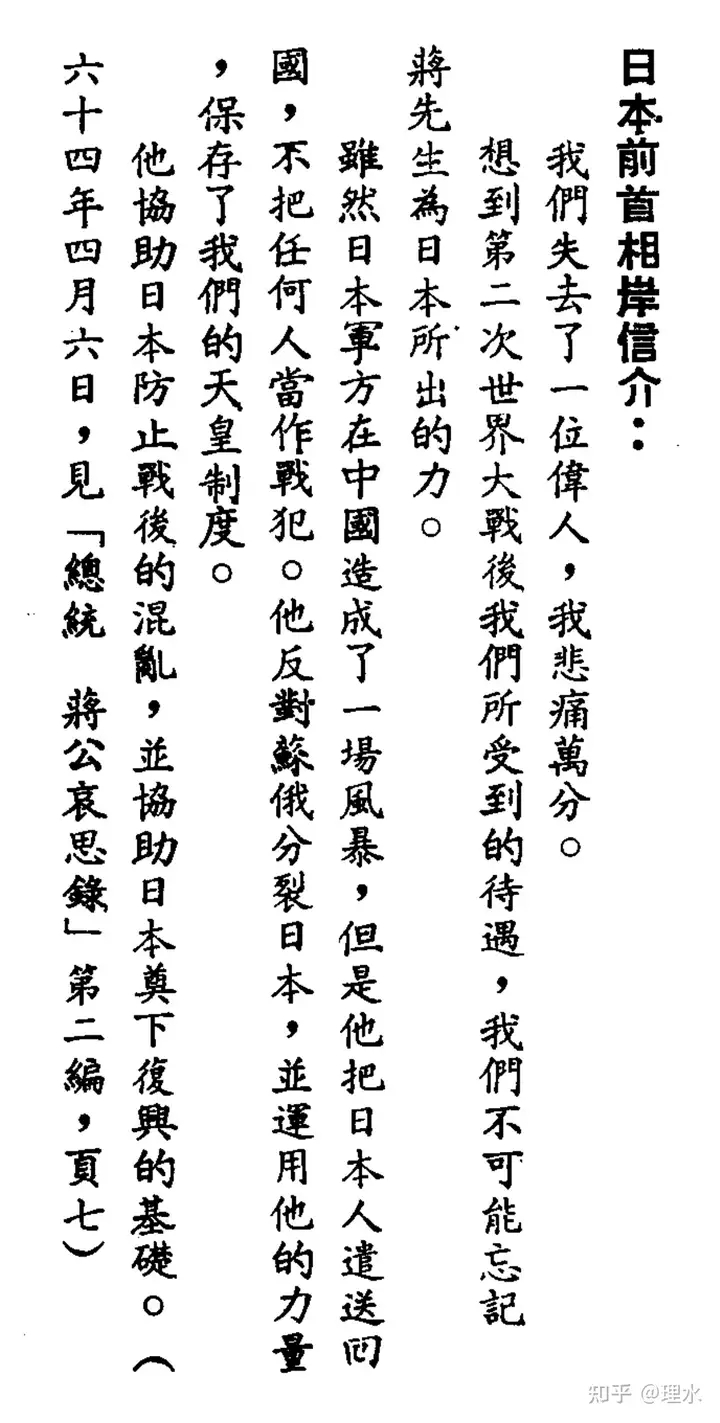 日本前首相岸信介：
我們失去了一位偉人，我悲痛萬分。
想到第二次世界大戰後我們所受到的待遇，我們不可能忘記
蔣先生為日本所出的力。
雖然日本軍方在中國造成了一場風暴，但是他把日本人遣送回
國，不把任何人當作戰犯。他反對蘇俄分裂日本，並運用他的力量
，保存了我們的天皇制度。
他協助日本防止戰後的混亂，並協助日本奠下復興的基礎。（
六十四年四月六日，見「總統　蔣公哀思錄」第二編，頁七）
知乎 @理水